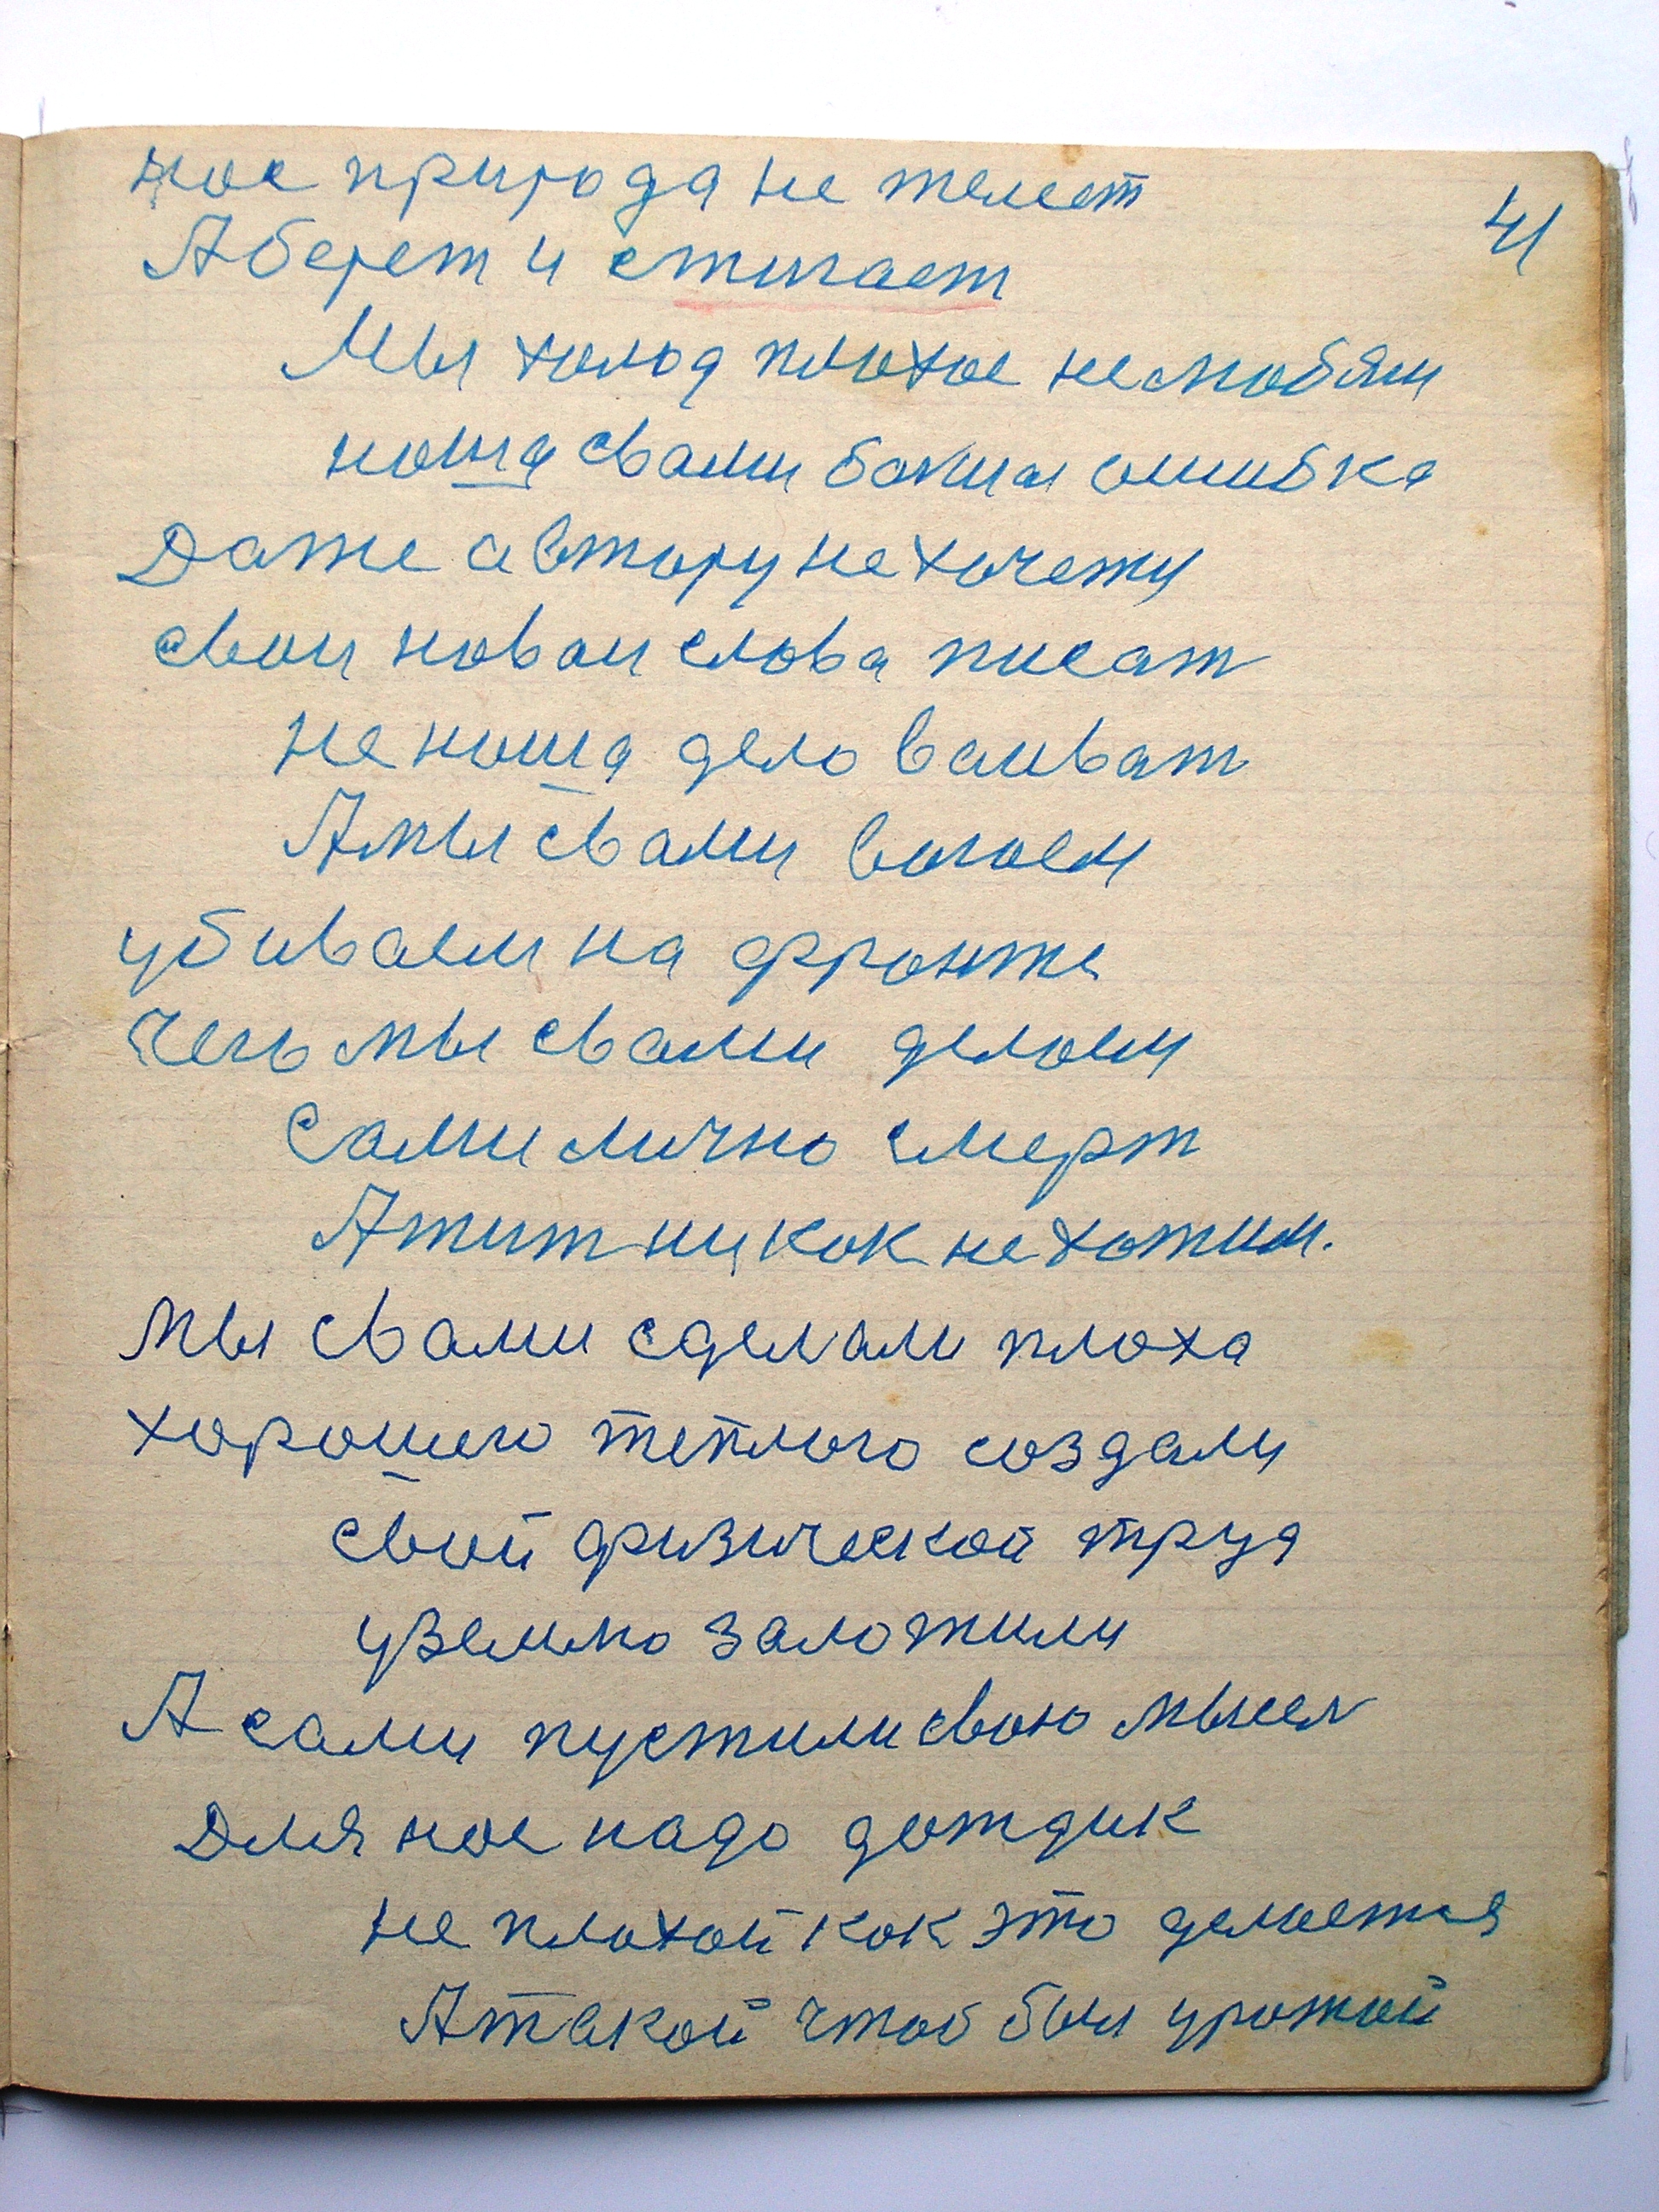 41
нас природа не жалеет
А берет и стигает
Мы холод плохое не любям
наша свами болшая ошибка
Даже автору не хочетця
свои новаи слова писат
не наша дело ваиват
А мы свами воюем
убиваем на фронте
Чего мы свами делаем
Сами лично смерт
А жит ни как не хотим.
Мы свами сделали плоха
хорошего теплого создали
свой физическай труд
у землю заложили
А сами пустили свою мысл
Для нас надо дождик
не плохой как это делается
А такой чтоб был урожай